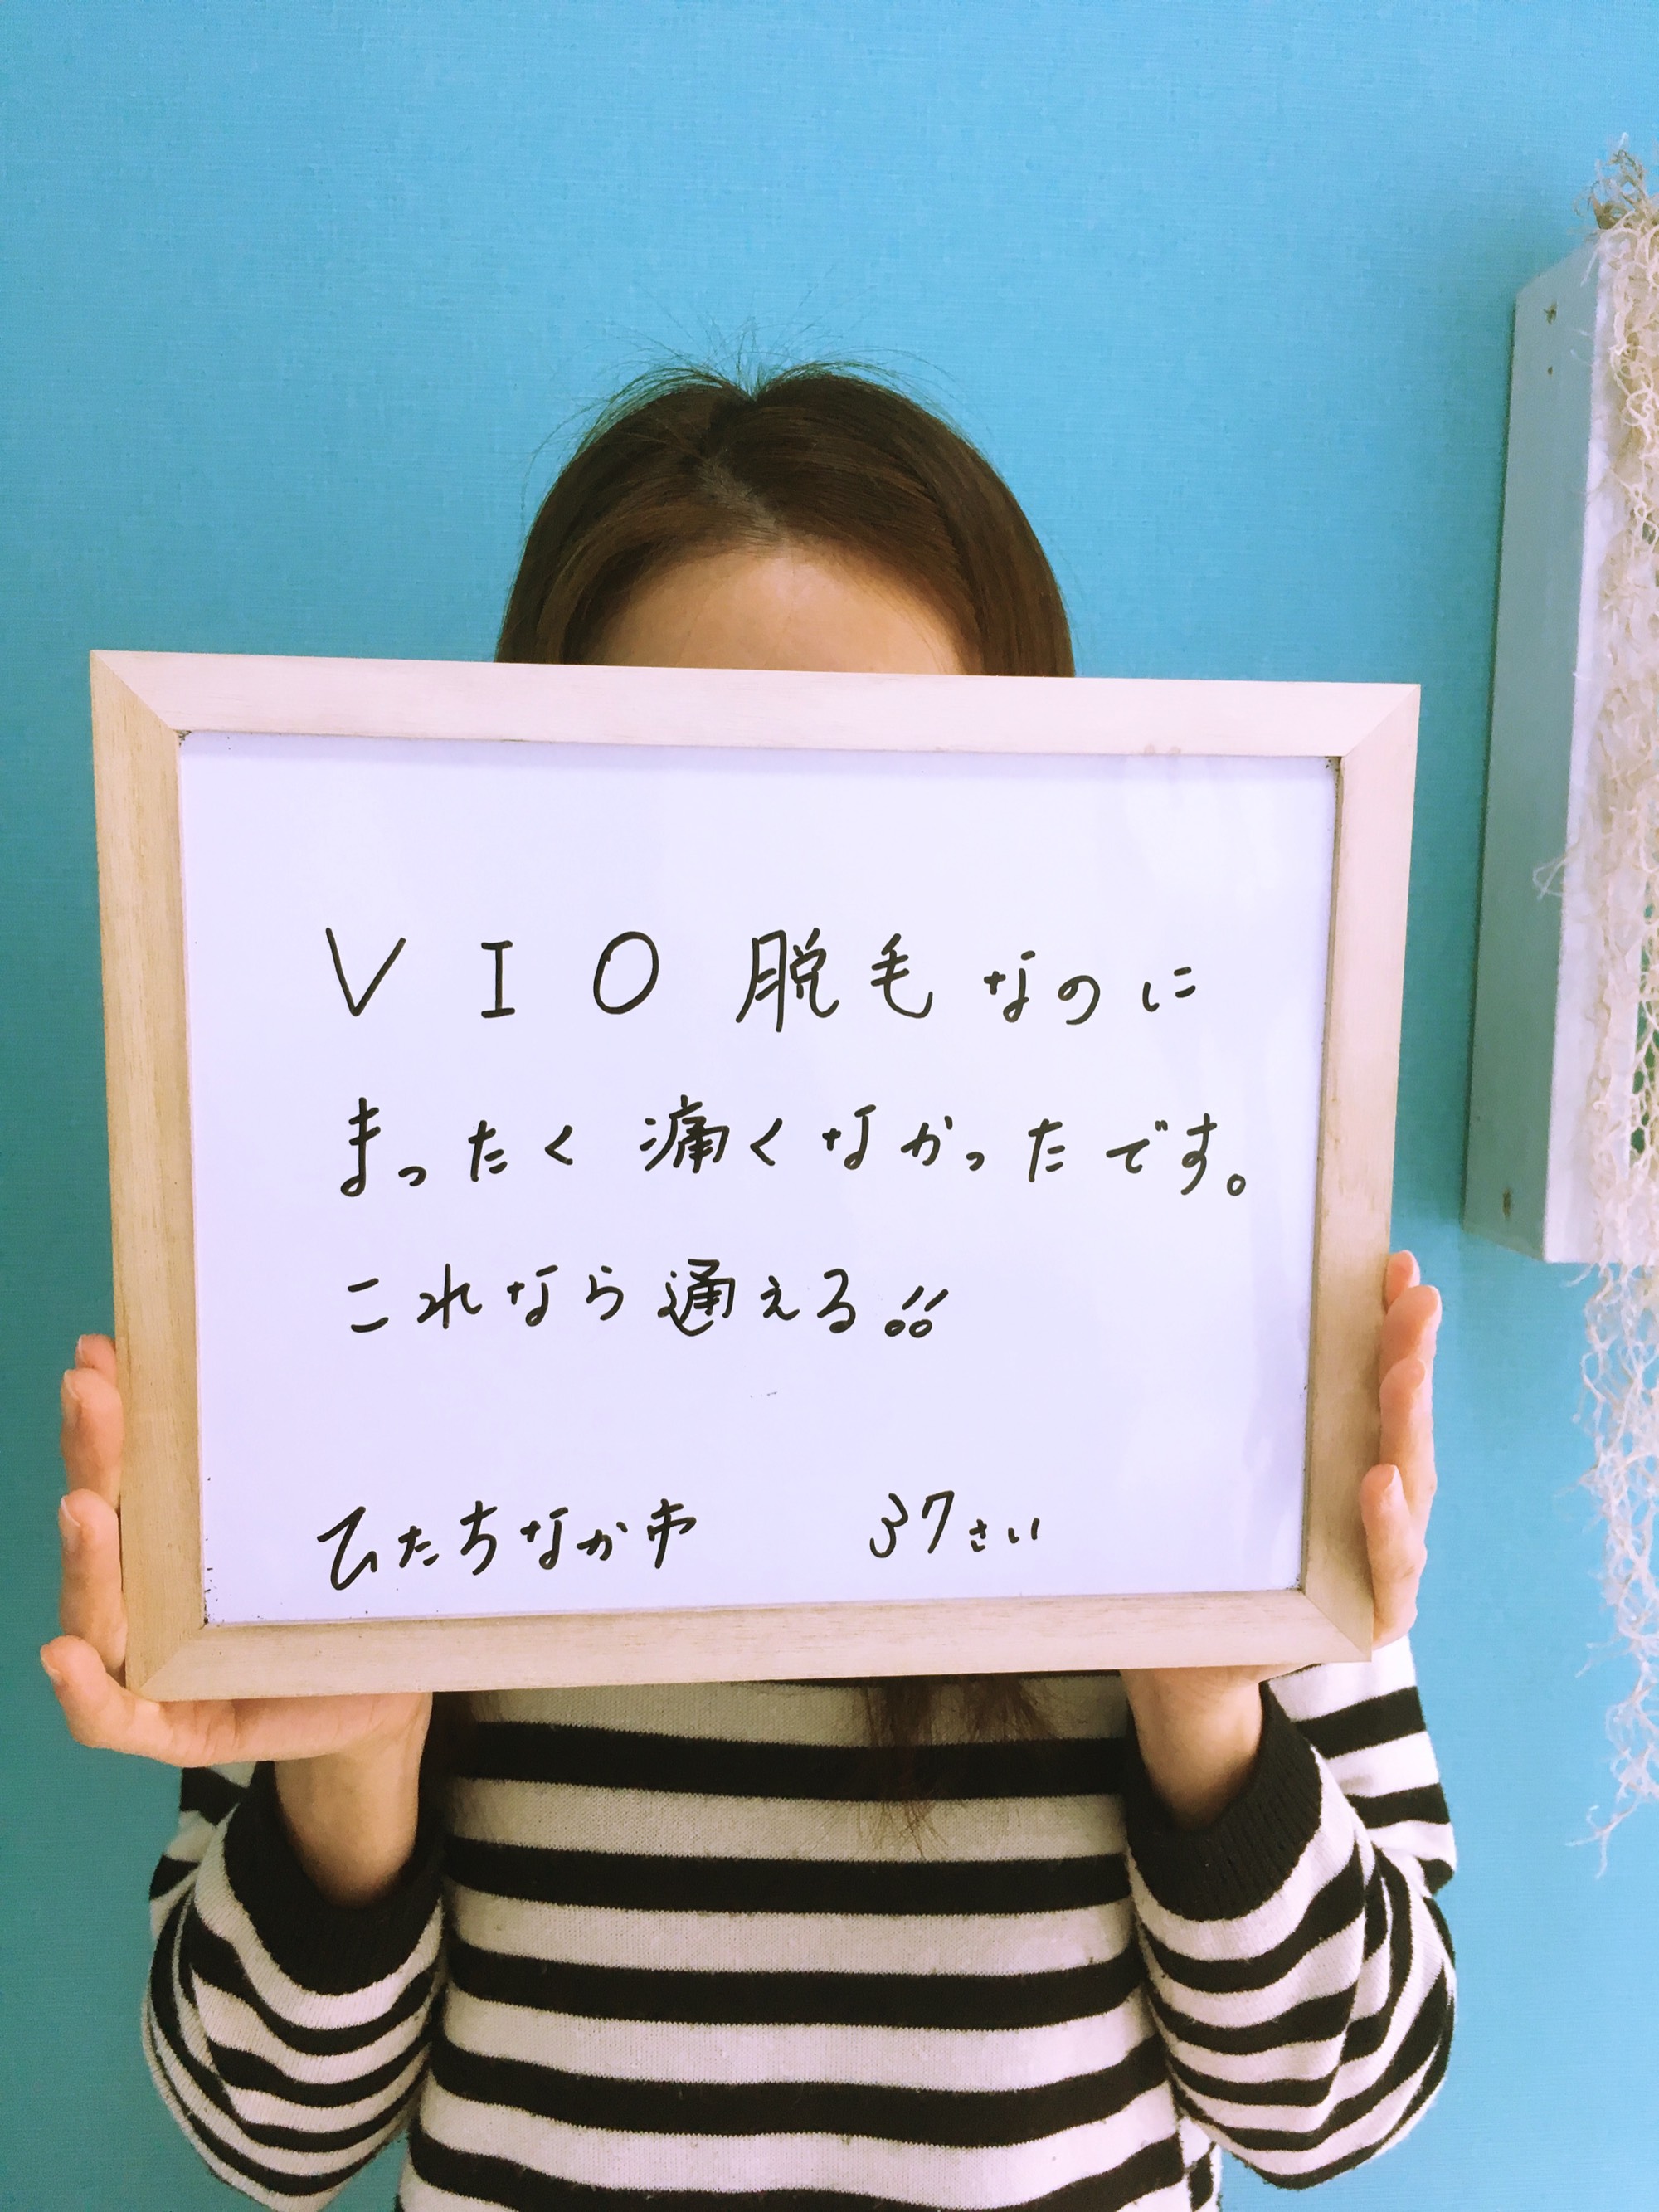 VIO脱毛なのに
まったく痛くなかったです。
これなら通える!!
ひたちなか市 37さい